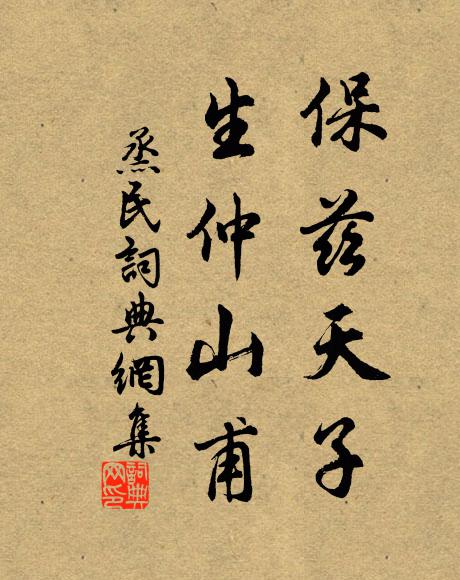 保茲天子
生仲山甫
烝民詞典網集
詞典網印